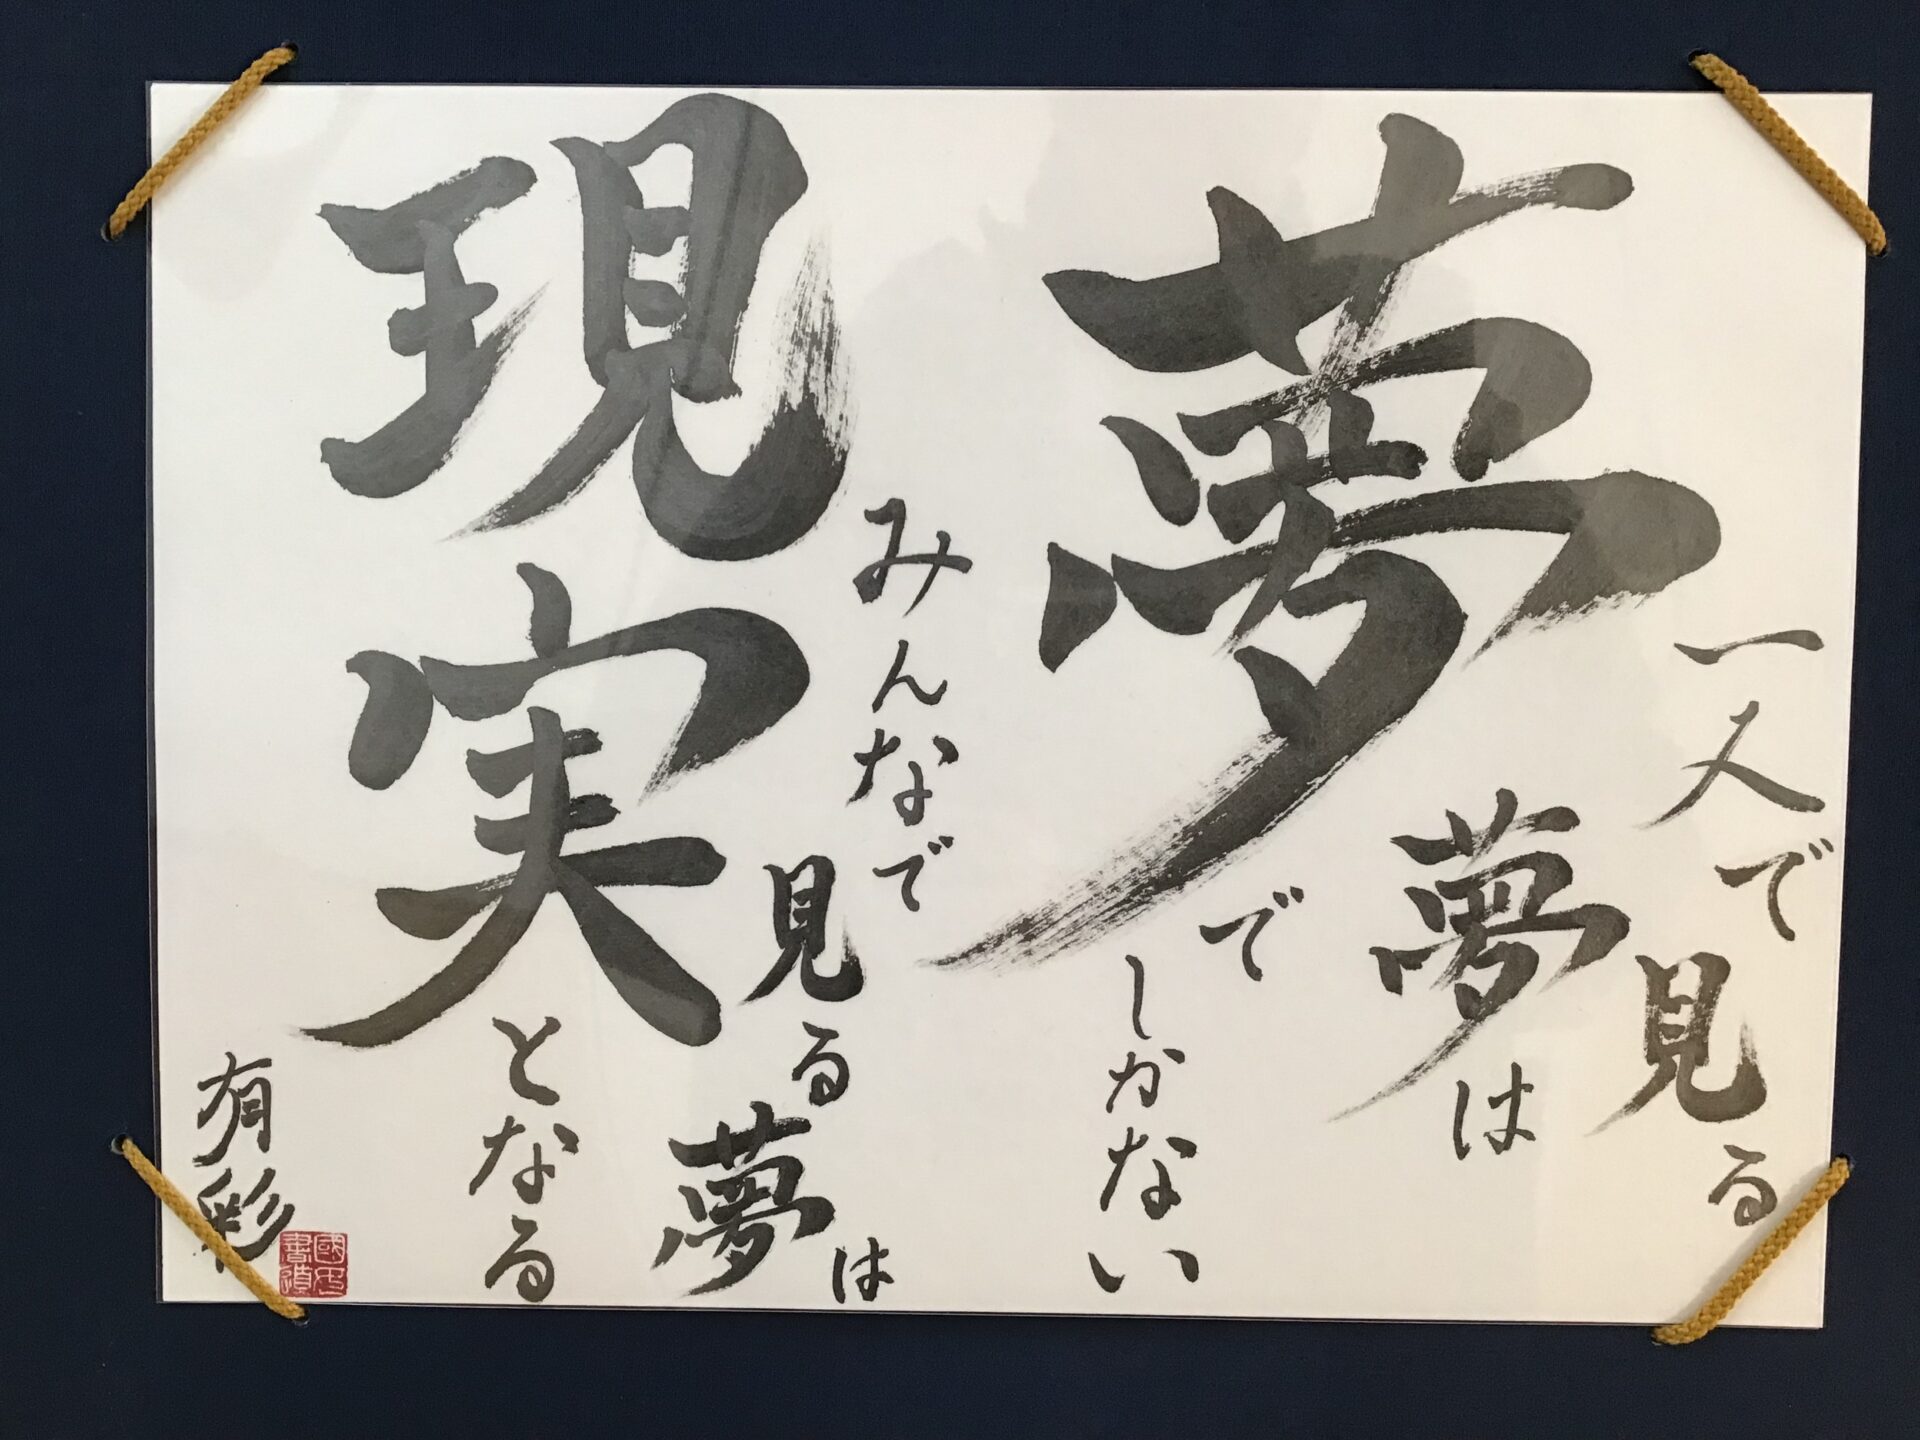 一人で見る
夢は
夢で
しかない
みんなで
見る
夢は
現実
となる
有彩